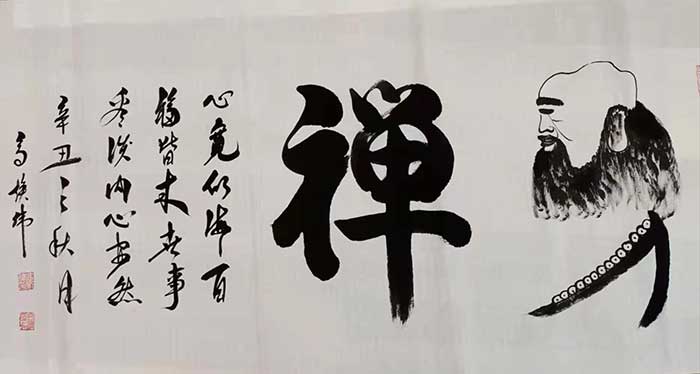 禅
心宽似海百
福皆来世事
看淡内心安然
辛丑之秋月
高